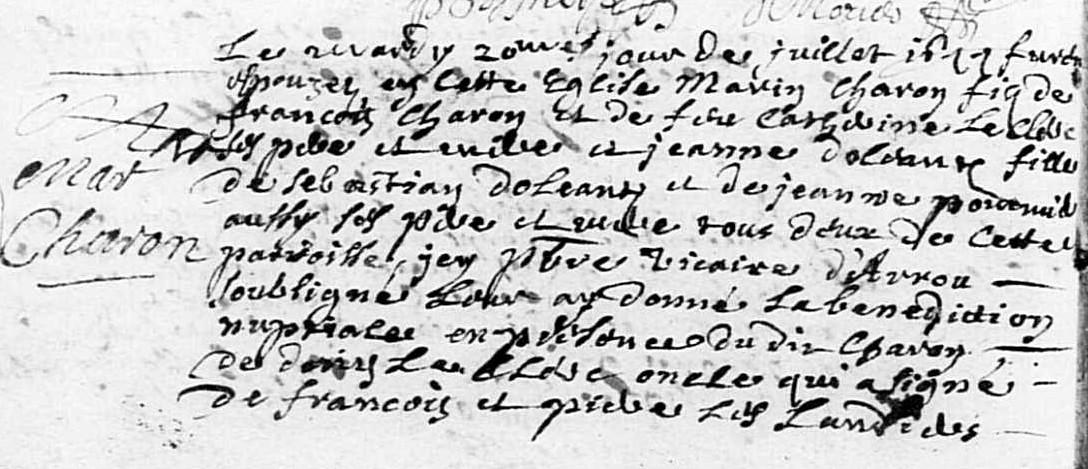 Le mardy 20me jour de juillet 1677 furent
espousez en cette Eglise Marin Charon fis de
francois Charon et de feue Catherine Leclerc
ses pere et mere et jeanne doleans fille
de sebastian doleans et de jeanne
aussy ses pere et mere tous deux de cette
parroisse, jey pbre vicaire d'Arrou
soubsigné leur ay donné la benediction
nuptiale en presence dudit Charon
de denis Le Clerc oncle qui a signé
de francois et pierre les Landides
Mar
Charon